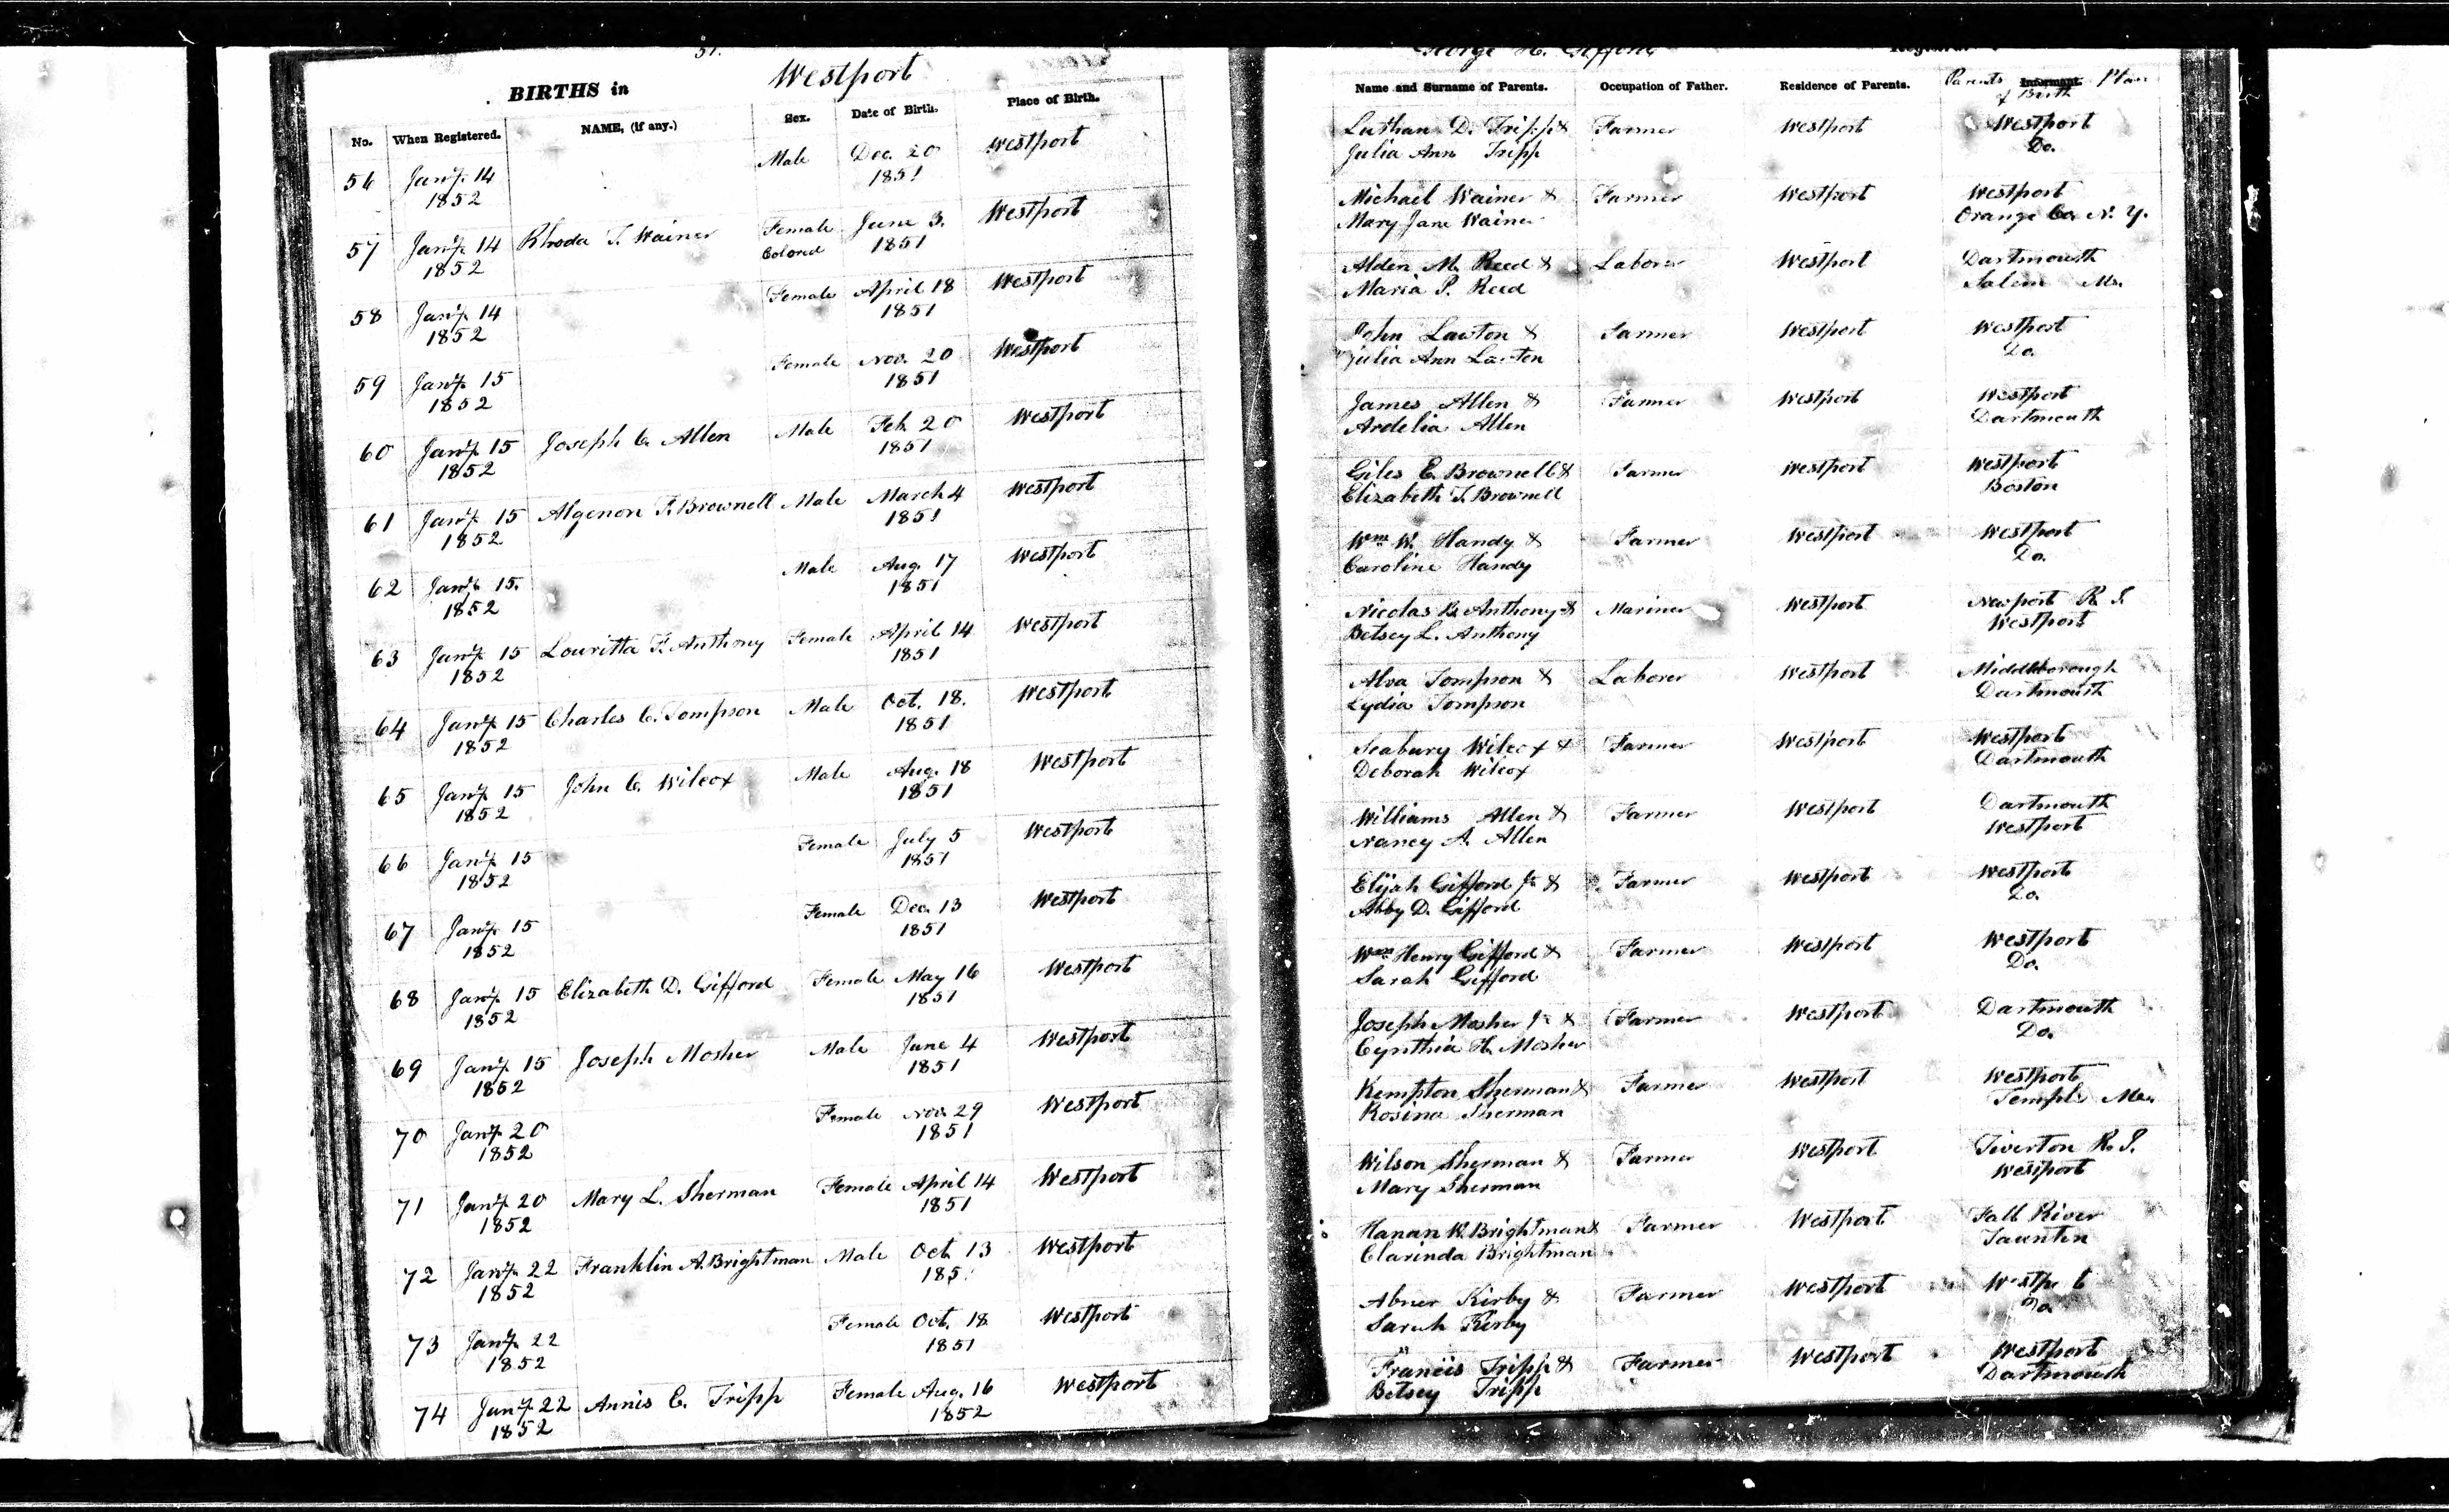 51.
BIRTHS in Westport
No. When Registered. NAME, (if any.) Sex. Date of Birth. Place of Birth.
56 Jany. 14 Male Dec. 20 Westport
1852 1851
57 Jany. 14 Rhoda T. Wainer Female June 3. Westport
1852 Colored 1851
58 Jany. 14 Female April 18 Westport
1852 1851
59 Jany. 15 Female Nov. 20 Westport
1852 1851
60 Jany. 15 Joseph C. Allen Male Feb 20 Westport
1852 1851
61 Jany. 15 Algenon F. Brownell Male March 4 Westport
1852 1851
62 Jany. 15. Male Aug. 17 Westport
1852 1851
63 Jany. 15 Louritta F. Anthony Female April 14 Westport
1852 1851
64 Jany. 15 Charles C. Tompson Male Oct. 18. Westport
1852 1851
65 Jany. 15 John C. Wilcox Male Aug. 18 Westport
1852 1851
66 Jany. 15 Female July 5 Westport
1852 1851
67 Jany. 15 Female Dec. 13 Westport
1852 1851
68 Jany. 15 Elizabeth D. Gifford Female May 16 Westport
1852 1851
69 Jany. 15 Joseph Mosher Male June 4 Westport
1852 1851
70 Jany. 20 Female Nov. 29 Westport
1852 1851
71 Jany. 20 Mary L. Sherman Female April 14 Westport
1852 1851
72 Jany. 22 Franklin A. Brightman Male Oct. 13 Westport
1852 185
73 Jany. 22 Female Oct. 18 Westport
1852 1851
74 Jany. 22 Annis C. Tripp Female Aug. 16 Westport
1852 1852
George H. Gifford
Name and Surname of Parents. Occupation of Father. Residence of Parents. Parents Informant. Place
of Birth
Luthan D. Tripp & Farmer Westport Westport
Julia Ann Tripp Do.
Michael Wainer & Farmer Westport Westport
Mary Jane Wainer Orange Co. N. Y.
Alden M. Reed & Laborer Westport Dartmouth
Maria P. Reed Salem Ms.
John Lawton & Farmer Westport Westport
Julia Ann Lawton Do.
James Allen & Farmer Westport Westport
Ardelia Allen Dartmouth
Giles E. Brownell & Farmer Westport Westport
Elizabeth T. Brownell Boston
Wm. W. Handy & Farmer Westport Westport
Caroline Handy Do.
Nicolas B. Anthony & Mariner Westport Newport R. I.
Betsey L. Anthony Westport
Alva Tompson & Laborer Westport Middleborough
Lydia Tompson Dartmouth
Seabury Wilcox & Farmer Westport Westport
Deborah Wilcox Dartmouth
Williams Allen & Farmer Westport Dartmouth
Nancy A. Allen Westport
Elijah Gifford Jr. & Farmer Westport Westport
Abby D. Gifford Do.
Wm. Henry Gifford & Farmer Westport Westport
Sarah Gifford Do.
Joseph Mosher Jr. & Farmer Westport Dartmouth
Cynthia H. Mosher Do.
Kempton Sherman & Farmer Westport Westport
Rosina Sherman Temple Me.
Wilson Sherman & Farmer Westport Tiverton R. I.
Mary Sherman Westport
Hanan W. Brightman & Farmer Westport Fall River
Clarinda Brightman Taunton
Abner Kirby & Farmer Westport Westport
Sarah Kirby Do.
Francis Tripp & Farmer Westport Westport
Betsey Tripp Dartmouth